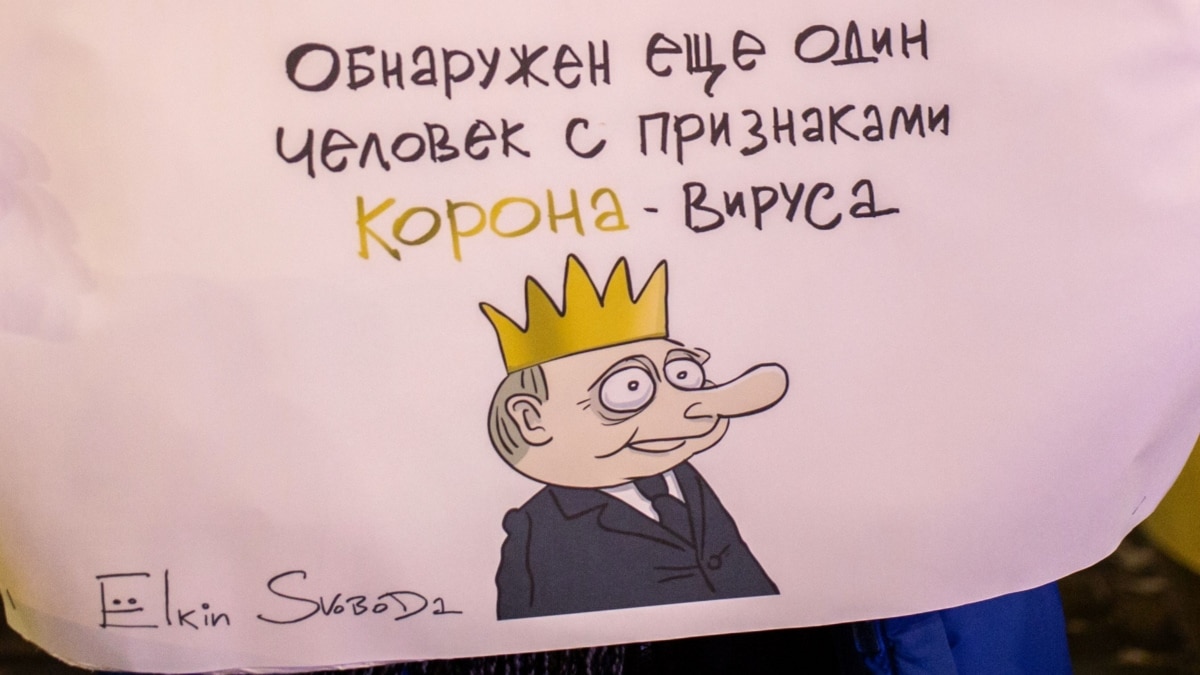 Обнаружен еще один
человек с признаками
корона-вируса
Elkin Svoboda